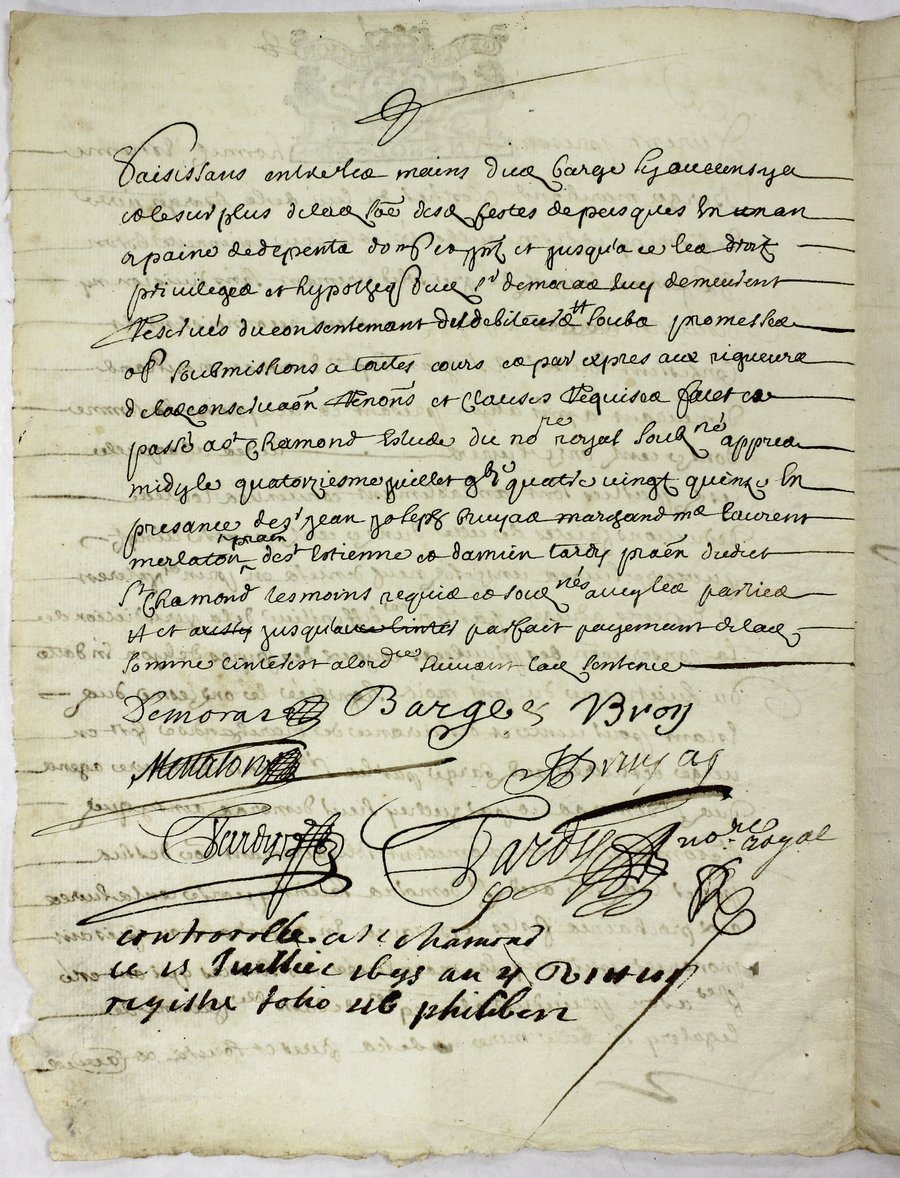 saisissans entre les mains dud barge
et le surplus de lad so͂e desd festes de pasques en un an
a paine de depents do et et jusqu'a ce les droit
privileges et hypotheq dud sr demoras luy demeurent
reservés du consentemant desd debiteurs soubs promesses
obs soubmissions a toutes cours et par expres aux rigueurs
de lad conservaon renons et clauses requises fait et
passé a st chamond estude du nore royal soubné appres
midy le quatorziesme juillet quatre vingt quinze en
presance de sr jean joseph bruyas marchand me laurent
merlaton praen de sr estienne et damien tardy praen dudict
st chamond tesmoins requis et soubnés avey les parties
et jusqu'au parfait payemant de lad
somme linterest a lordre suivant lad sentence
Demoras Barge Broy
Merlaton JJBruyas
Tardy Tardy nore royal
controolle a st chamond
ce 15 Juillie 1695 au 4
registre folio 46 philibert